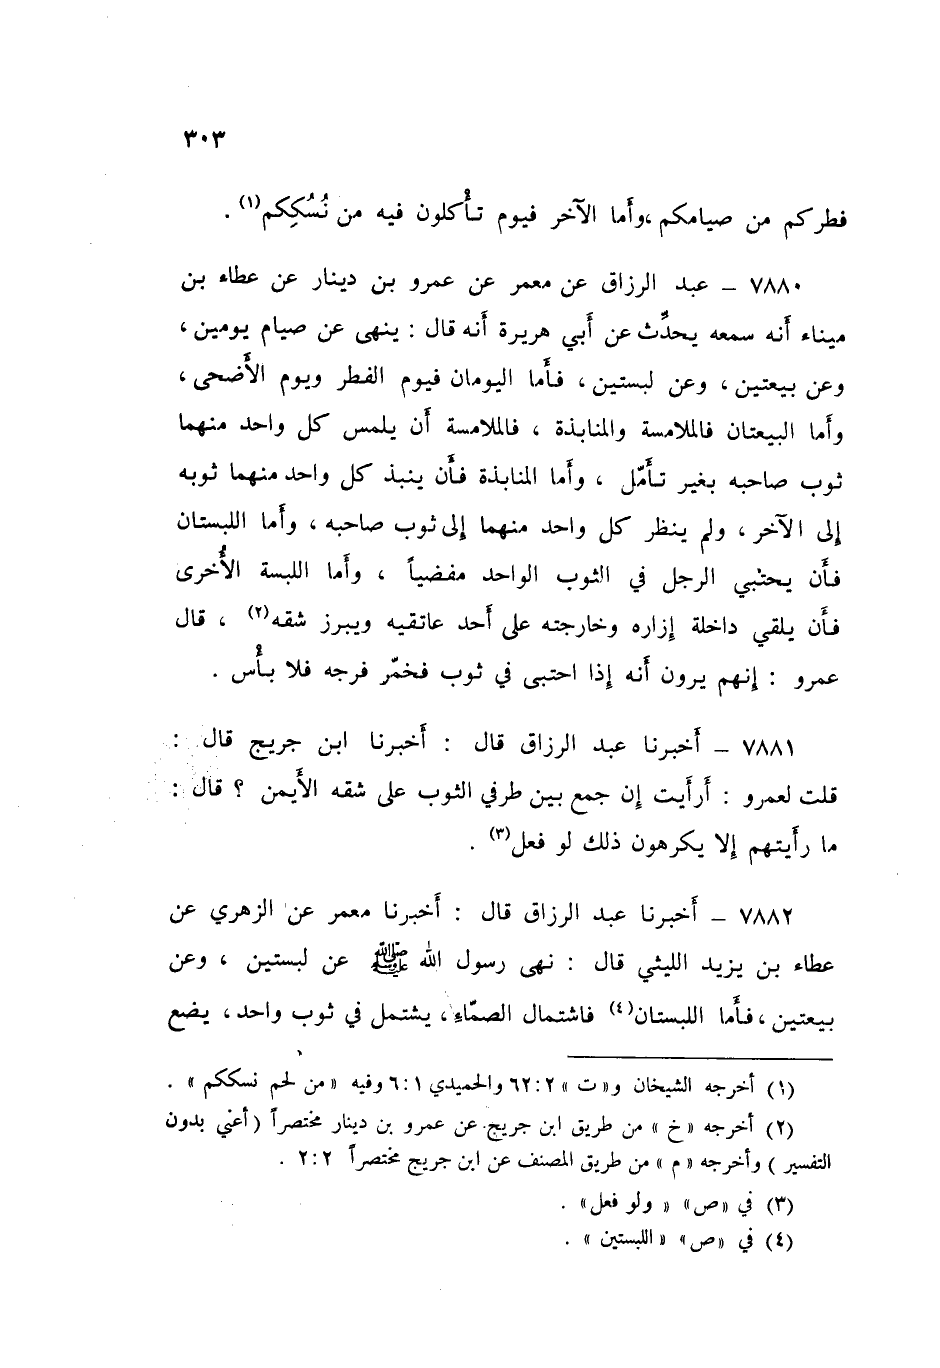 ٣٠٣
فطركم من صيامكم ،وأَما الآخر فيوم تأْكلون فيه من نُسُكِكم(١) .
٧٨٨٠ – عبد الرزاق عن معمر عن عمرو بن دينار عن عطاء بن
ميناء أَنه سمعه يحدِّث عن أَبي هريرة أَنه قال : ينهى عن صيام يومين ،
وعن بيعتين ، وعن لبستين ، فأَما اليومان فيوم الفطر ويوم الأَضحى ،
وأَما البيعتان فالملامسة والمنابذة ، فالملامسة أَن يلمس كل واحد منهما
ثوب صاحبه بغير تأَمّل ، وأَما المنابذة فأَن ينبذ كل واحد منهما ثوبه
إلى الآخر ، ولم ينظر كل واحد منهما إلى ثوب صاحبه ، وأَما اللبستان
فأَن يحتبي الرجل في الثوب الواحد مفضياً ، وأَما اللبسة الأُخرى
فأَن يلقي داخلة إزاره وخارجته على أَحد عاتقيه ويبرز شقه(٢) ، قال
عمرو : إنهم يرون أَنه إذا احتبى في ثوب فخمّر فرجه فلا بأْس .
٧٨٨١ – أَخبرنا عبد الرزاق قال : أَخبرنا ابن جريج قال :
قلت لعمرو : أَرأَيت إن جمع بين طرفي الثوب على شقه الأَيمن ؟ قال :
ما رأَيتهم إلا يكرهون ذلك لو فعل(٣) .
٧٨٨٢ – أَخبرنا عبد الرزاق قال : أَخبرنا معمر عن الزهري عن
عطاء بن يزيد الليثي قال : نهى رسول الله ﷺ عن لبستين ، وعن
بيعتين ،فأَما اللبستان(٤) فاشتمال الصمّاء، يشتمل في ثوب واحد ، يضع
(١) أخرجه الشيخان و«ت» ٢:‏٦٢ والحميدي ١:‏٦ وفيه «من لحم نسككم» .
(٢) أخرجه «خ» من طريق ابن جريج عن عمرو بن دينار مختصراً (أعني بدون
التفسير) وأخرجه «م» من طريق المصنف عن ابن جريج مختصراً ٢:‏٢ .
(٣) في «ص» « ولو فعل» .
(٤) في «ص» « اللبستين » .